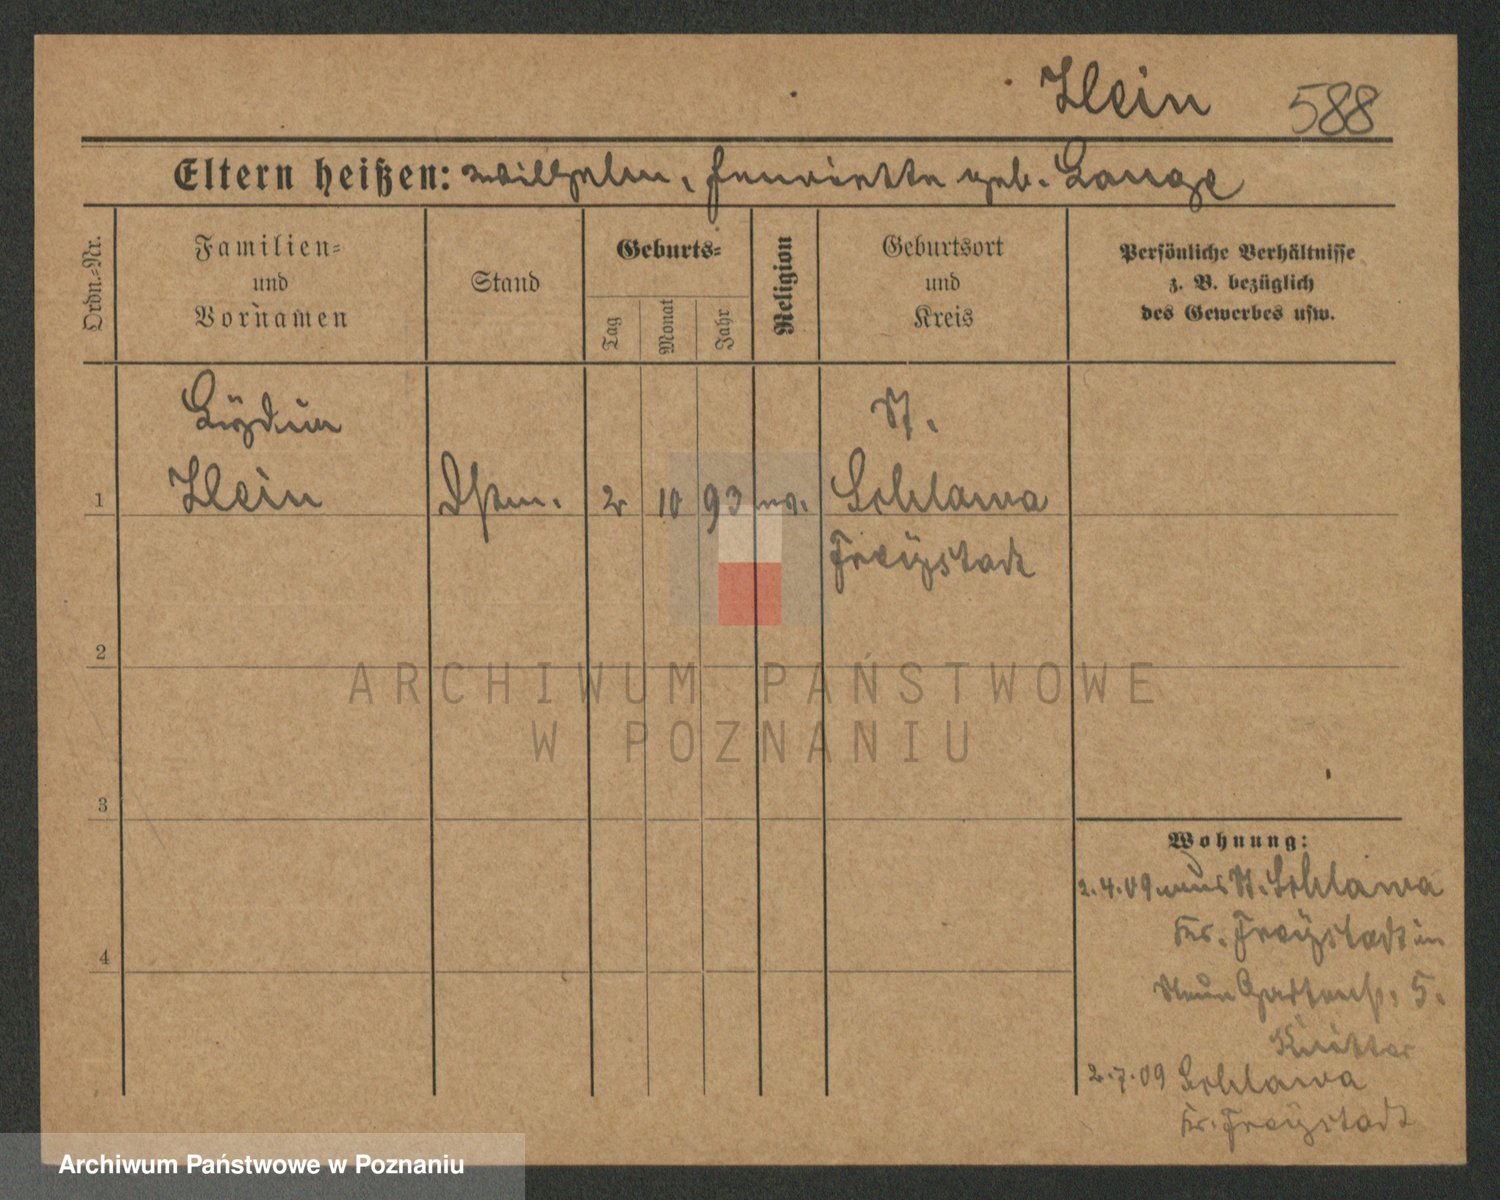 Klein 588
Eltern heißen: Wilhelm, Henriette geb. Lange
Ordn.-Nr.
Familien-
und
Vornamen
Stand
Geburts-
Tag
Monat
Jahr
Religion
Geburtsort
und
Kreis
Persönliche Verhältnisse
z. B. bezüglich
des Gewerbes usw.
St.
1 Klein Dstm. 2 10 93 ev. Schlawa
Freystadt
2
ARCHIWUM PAŃSTWOWE
W POZNANIU
3
Wohnung:
2.4.09 aus St. Schlawa
Kr. Freystadt in
Neue Gartenstr. 5.
4
2.7.09 Schlawa
Kr. Freystadt
Archiwum Państwowe w Poznaniu